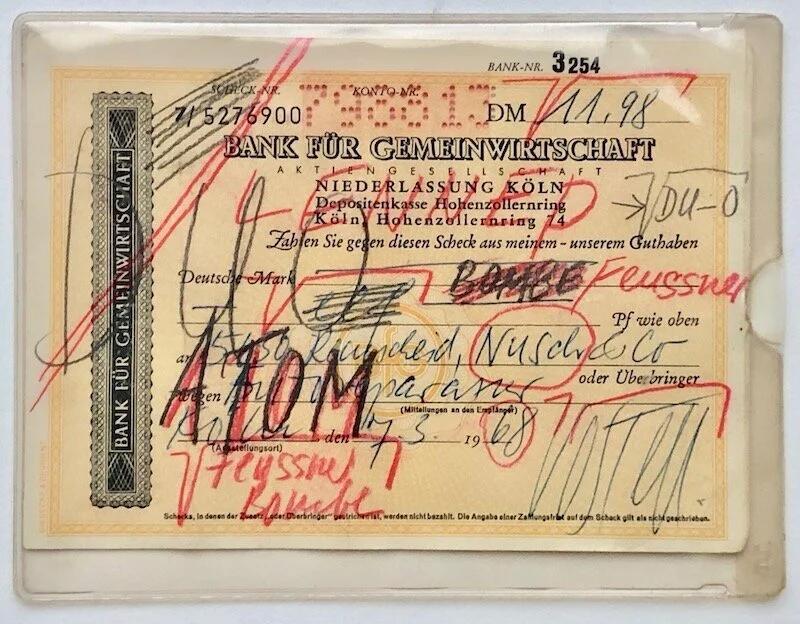 BANK-NR. 3254
SCHECK-NR. KONTO-NR.
7/5276900 798813 DM 11.98
BANK FÜR GEMEINWIRTSCHAFT
AKTIENGESELLSCHAFT
NIEDERLASSUNG KÖLN
Depositenkasse Hohenzollernring
Köln, Hohenzollernring 74
LENNEP
DU-O
Zahlen Sie gegen diesen Scheck aus meinem - unserem Guthaben
Deutsche Mark BOMBE Feussner
Pf wie oben
an Remscheid, Nusch & Co
oder Überbringer
wegen
ATOM
(Mitteilungen an den Empfänger)
den 7.3. 1968
(Ausstellungsort)
Feussner
Bombe
Schecks, in denen der Zusatz „oder Überbringer" gestrichen ist, werden nicht bezahlt. Die Angabe einer Zahlungsfrist auf dem Scheck gilt als nicht geschrieben.
BANK FÜR GEMEINWIRTSCHAFT